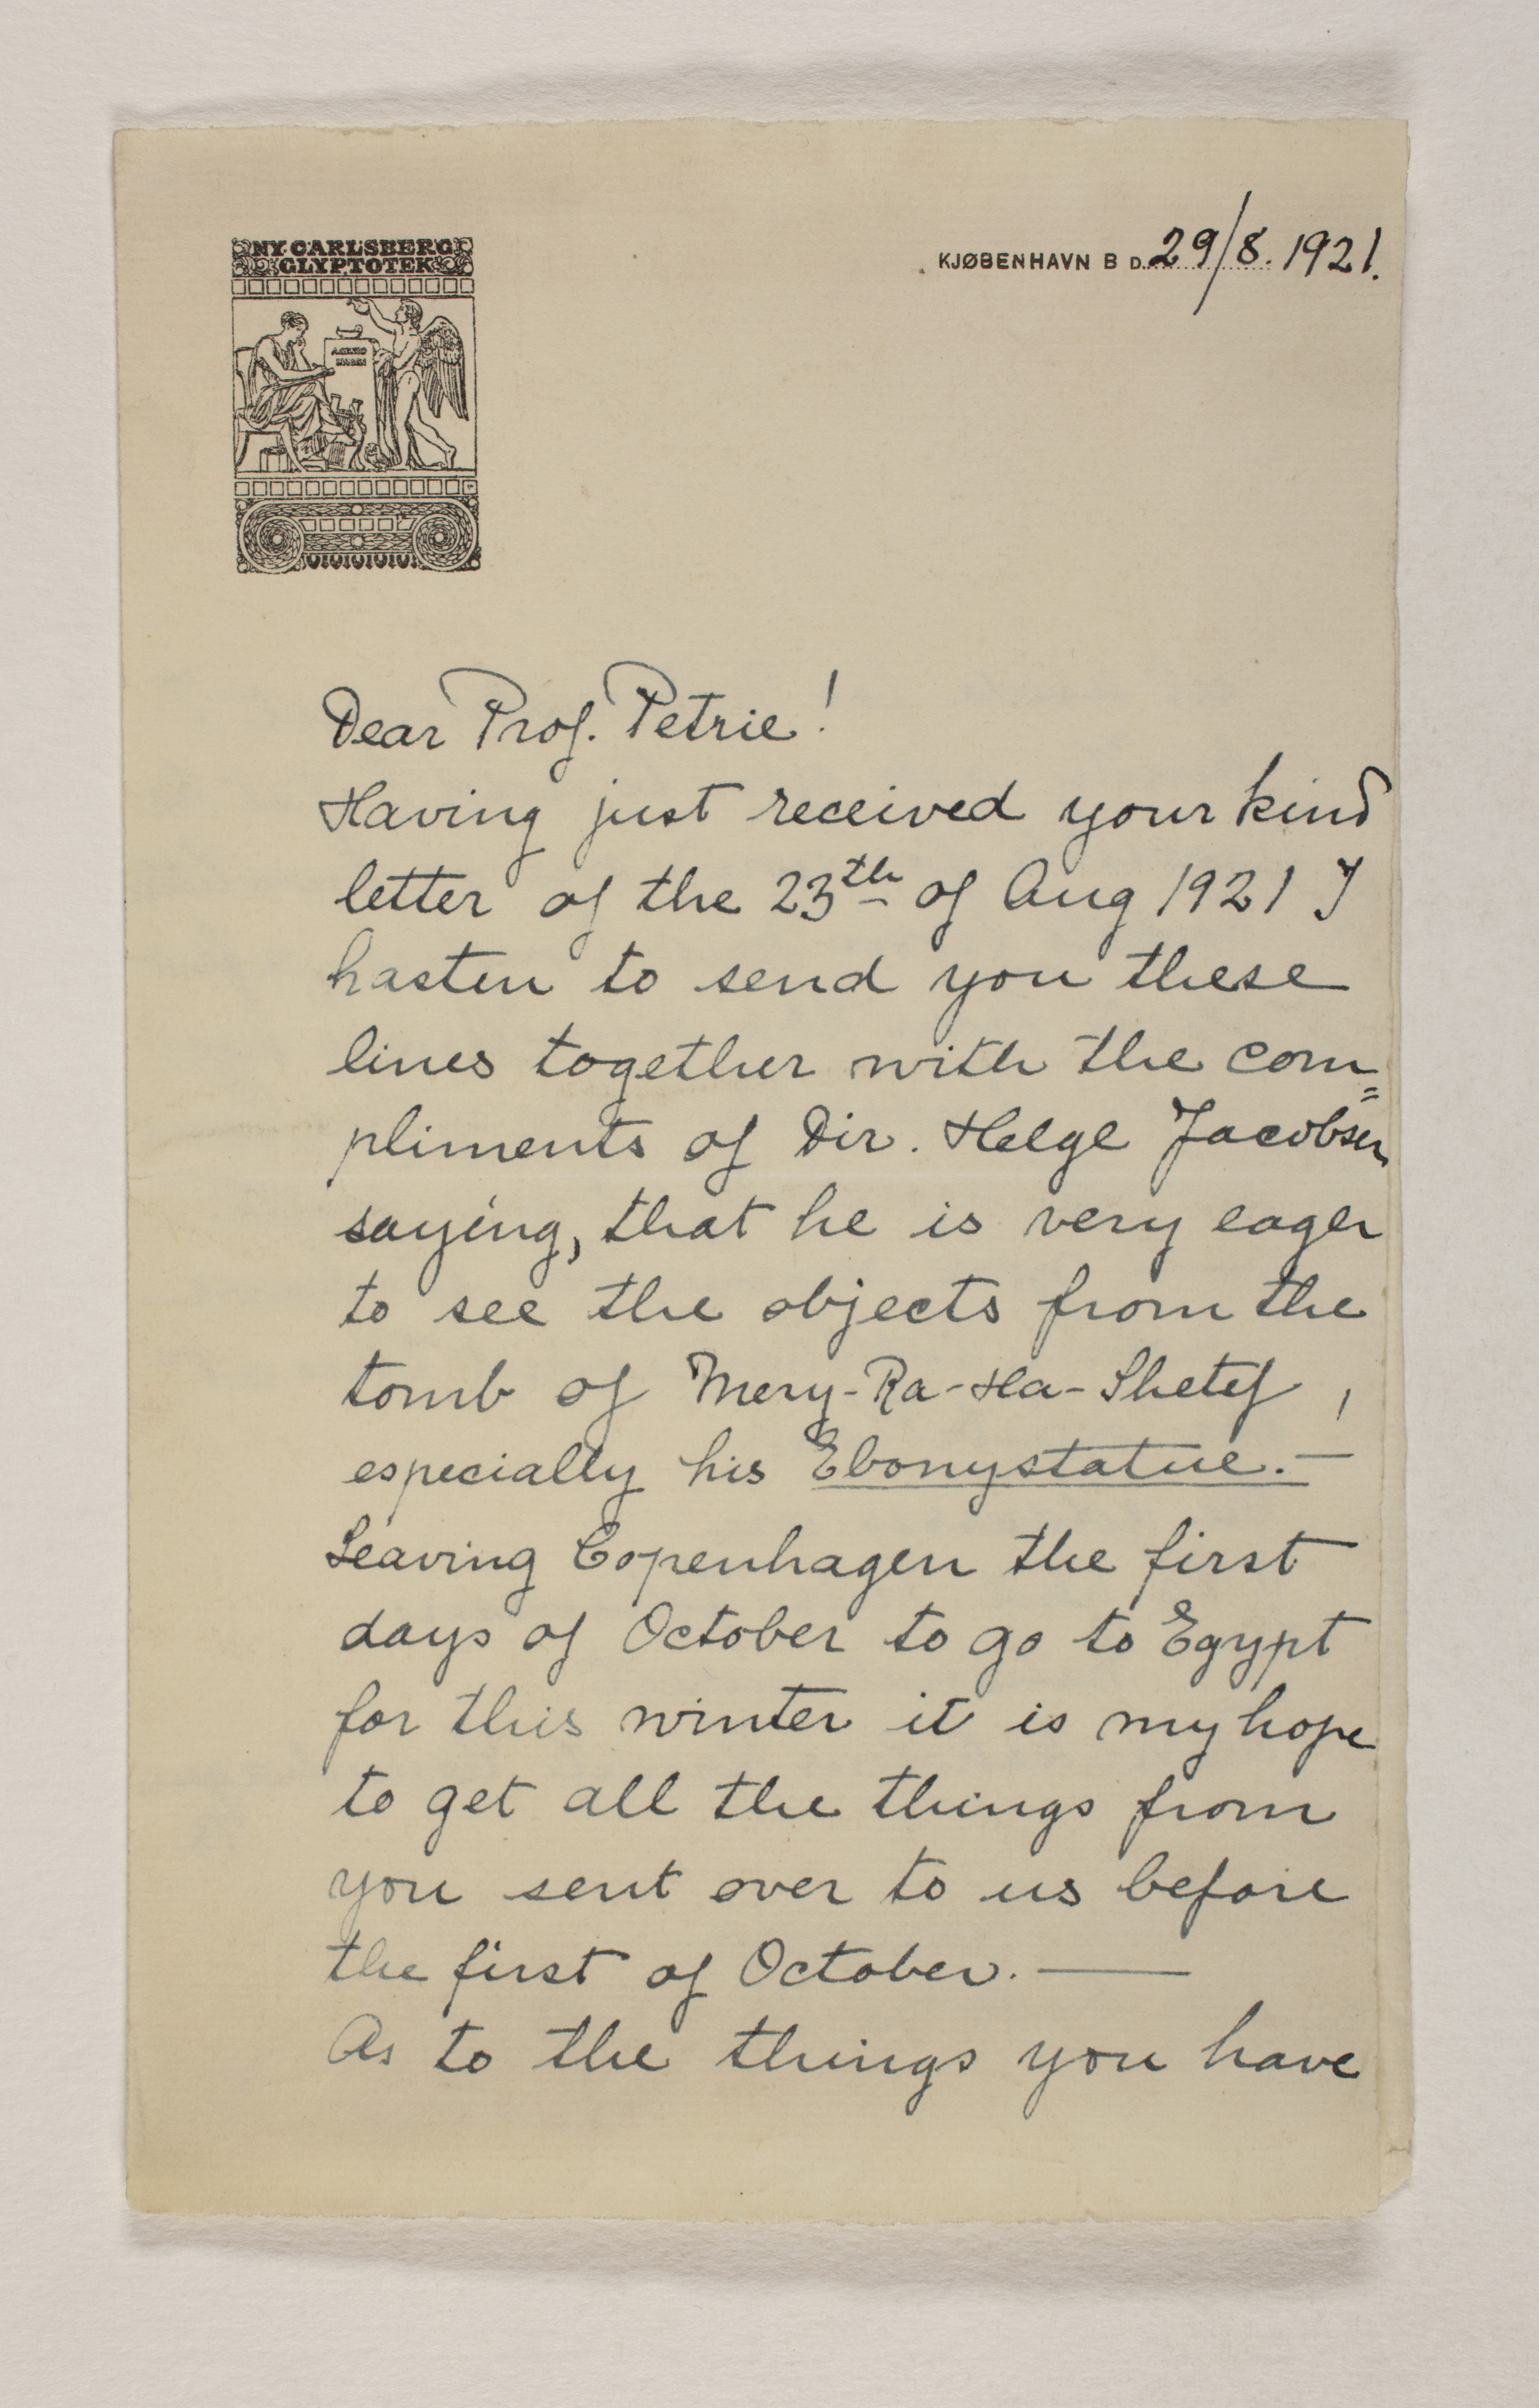 NY·CARLSBERG
GLYPTOTEK
KJØBENHAVN B D. 29/8. 1921.
Dear Prof. Petrie!
Having just received your kind
letter of the 23th of Aug 1921 I
hasten to send you these
lines together with the com=
pliments of Dir. Helge Jacobsen
saying, that he is very eager
to see the objects from the
tomb of Mery-Ra-Ha-Shetef,
especially his Ebonystatue.—
Leaving Copenhagen the first
days of October to go to Egypt
for this winter it is my hope
to get all the things from
you sent over to us before
the first of October.—
As to the things you have